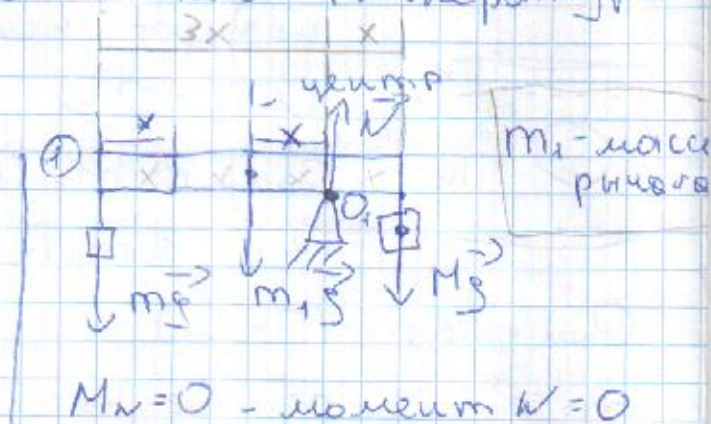 3x x
центр
N
① x x
x x x
O₁
m₁ - масс
рычага
mg m₁g Mg
M_N = 0 - момент N = 0